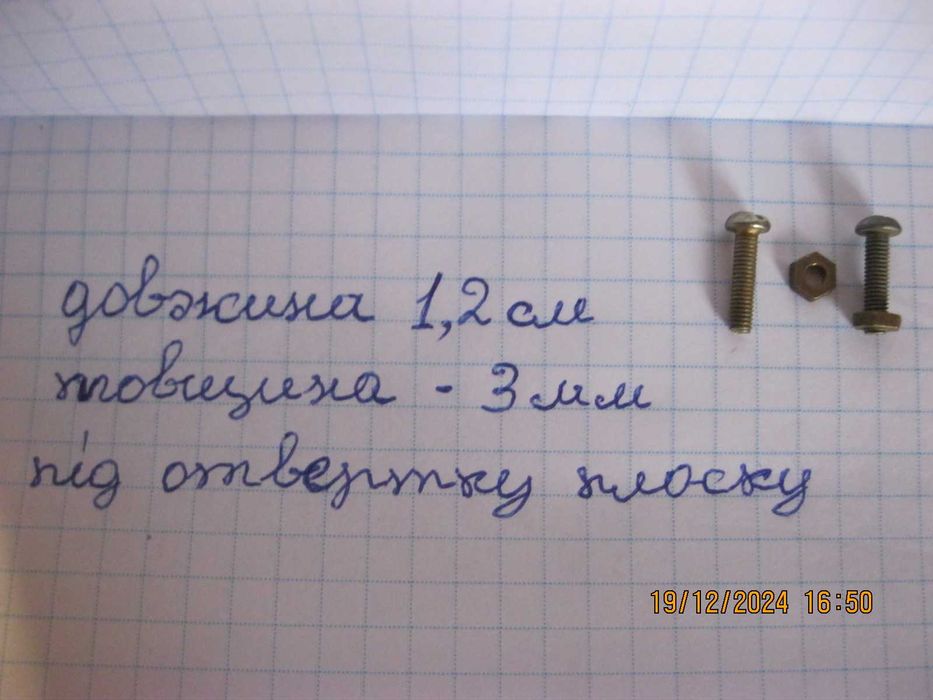 довжина 1,2 см
товщина - 3 мм
під отвертку плоску
19/12/2024 16:50